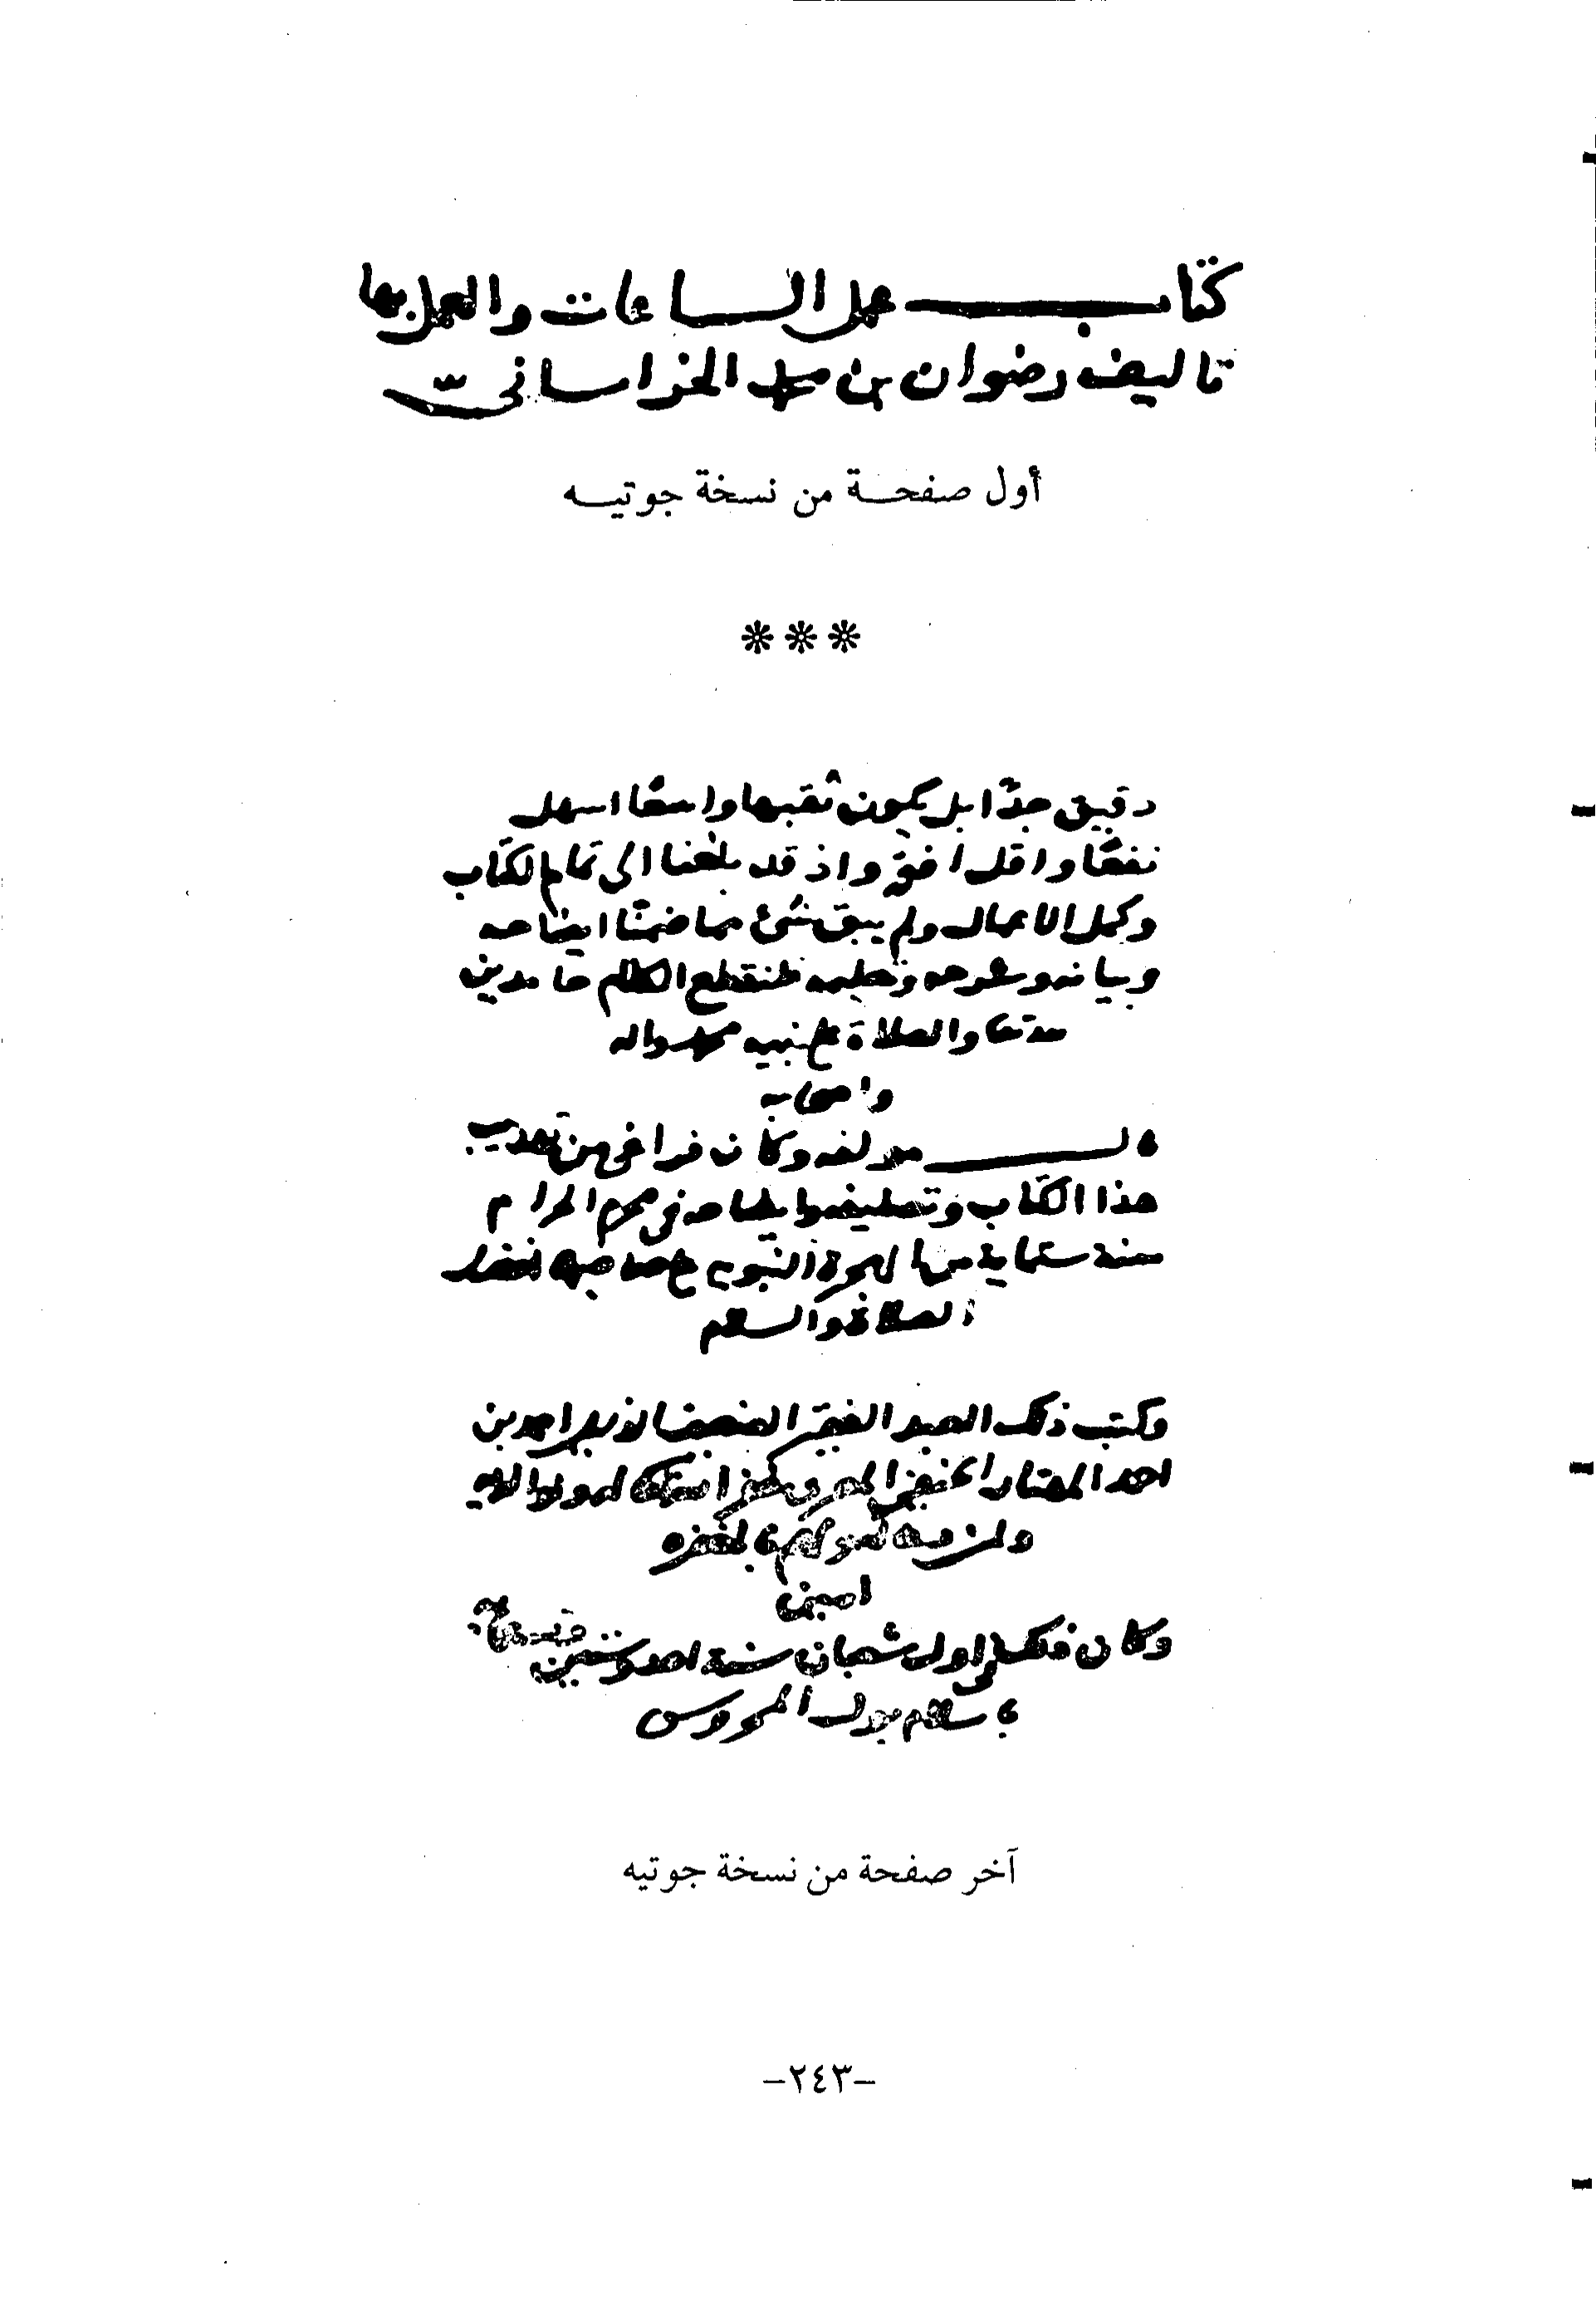 كتاب عمل الساعات والعمل بها
تاليف رضوان بن محمد الخراساني
أول صفحة من نسخة جوتيه
***
دقيق جدًا بل يكون ثقبها واسعًا اسهل
نفعًا واقل افة واذ قد بلغنا الى تمام الكتاب
وكمل الاعمال ولم يبق شئ مما ضمنّا ايضاحه
وبيانه وشرحه فلنقطع الكلام حامدين
والصلاة على نبيه محمد واله
واصحابه
قال مولفه وكان فراغى من تهذيب
هذا الكتاب وتصليفه وايضاحه فى محرم الحرام
سنة ستماية من الهجرة النبوية على صاحبها افضل
الصلاة والسلام
وكتب ذلك العبد الفقير الضعيف احمد بن
احمد المختار الحنفى
امين
وكان ذلك اول شعبان سنة احد وستين
المحروس
آخر صفحة من نسخة جوتيه
–٢٤٣–